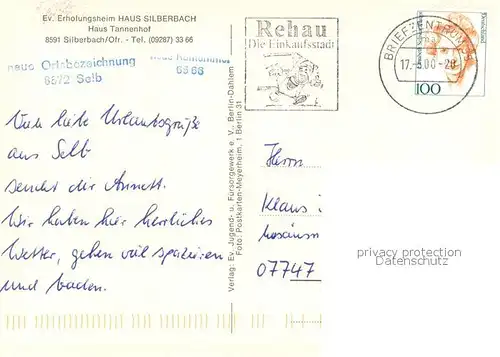 Ev. Erholungsheim HAUS SILBERBACH
Haus Tannenhof
8591 Silberbach/Ofr. - Tel. (09287) 33 66
neue Ortsbezeichnung
8672 Selb
neue Rufnummer
Rehau
Die Einkaufsstadt
BRIEFZENTRUM
100
Viele liebe Urlaubsgrüße
aus Selb
sendet dir Annett.
Wir haben hier herrliches
Wetter, gehen viel spazieren
und baden.
Verlag: Ev. Jugend- u. Fürsorgewerk e. V., Berlin-Dahlem
Foto: Postkarten-Meyerheim, 1 Berlin 31
Herrn
Klaus
07747
privacy protection
Datenschutz